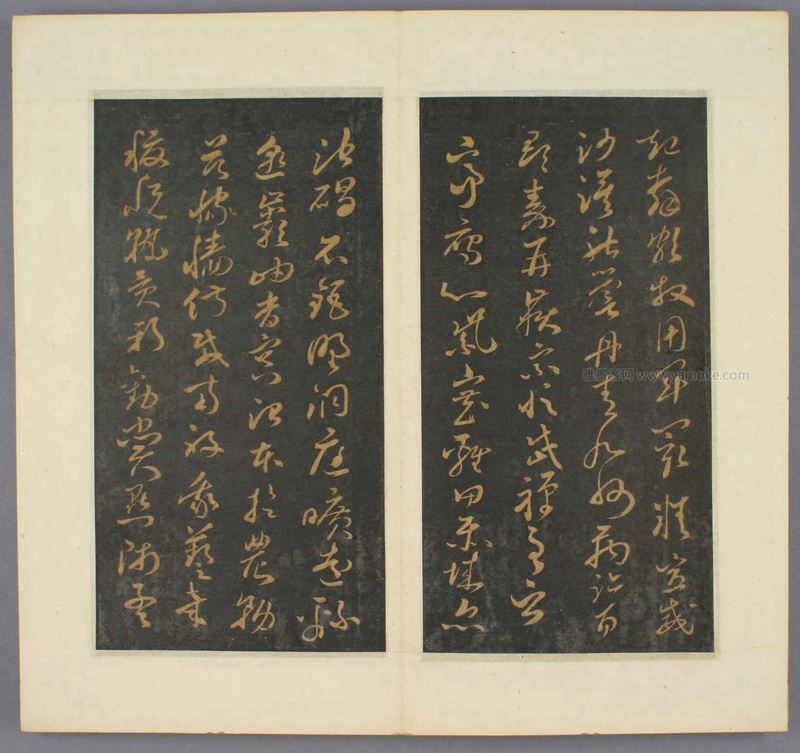 起翦頗牧用軍最精宣威
沙漠馳譽丹青九州禹跡百
郡秦并嶽宗恆岱禪主云
亭雁門紫塞雞田赤城昆
池碣石鉅野洞庭曠遠綿
邈巖岫杳冥治本於農務
茲稼穡俶載南畝我藝黍
稷稅熟貢新勸賞黜陟孟
雅墨客网 www.yamoke.com